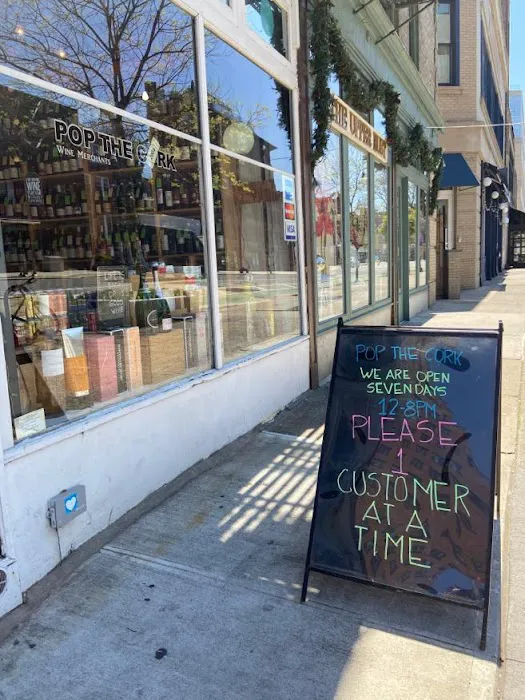 POP THE CORK
WINE MERCHANTS
WINE
VISA
THE UPPER
POP THE CORK
WE ARE OPEN
SEVEN DAYS
12-8PM
PLEASE
1
CUSTOMER
AT A
TIME